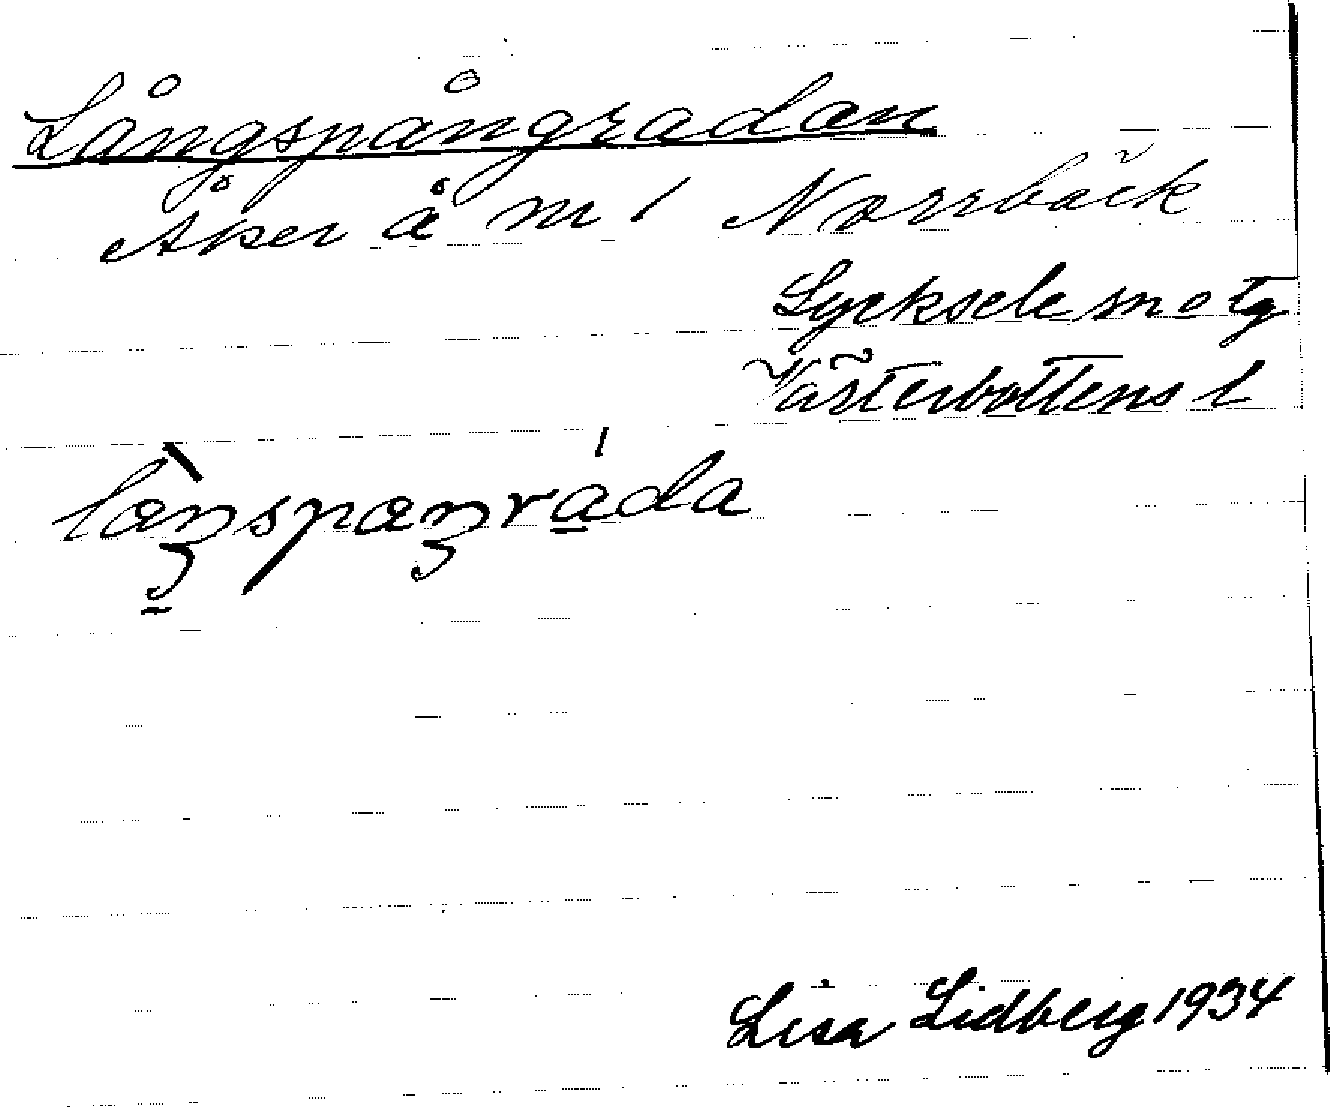 Långspångradan
Åker å m 1 Norrbäck
Lycksele sn o tg
Västerbottens l
làŋspaŋráda
Lisa Lidberg 1934